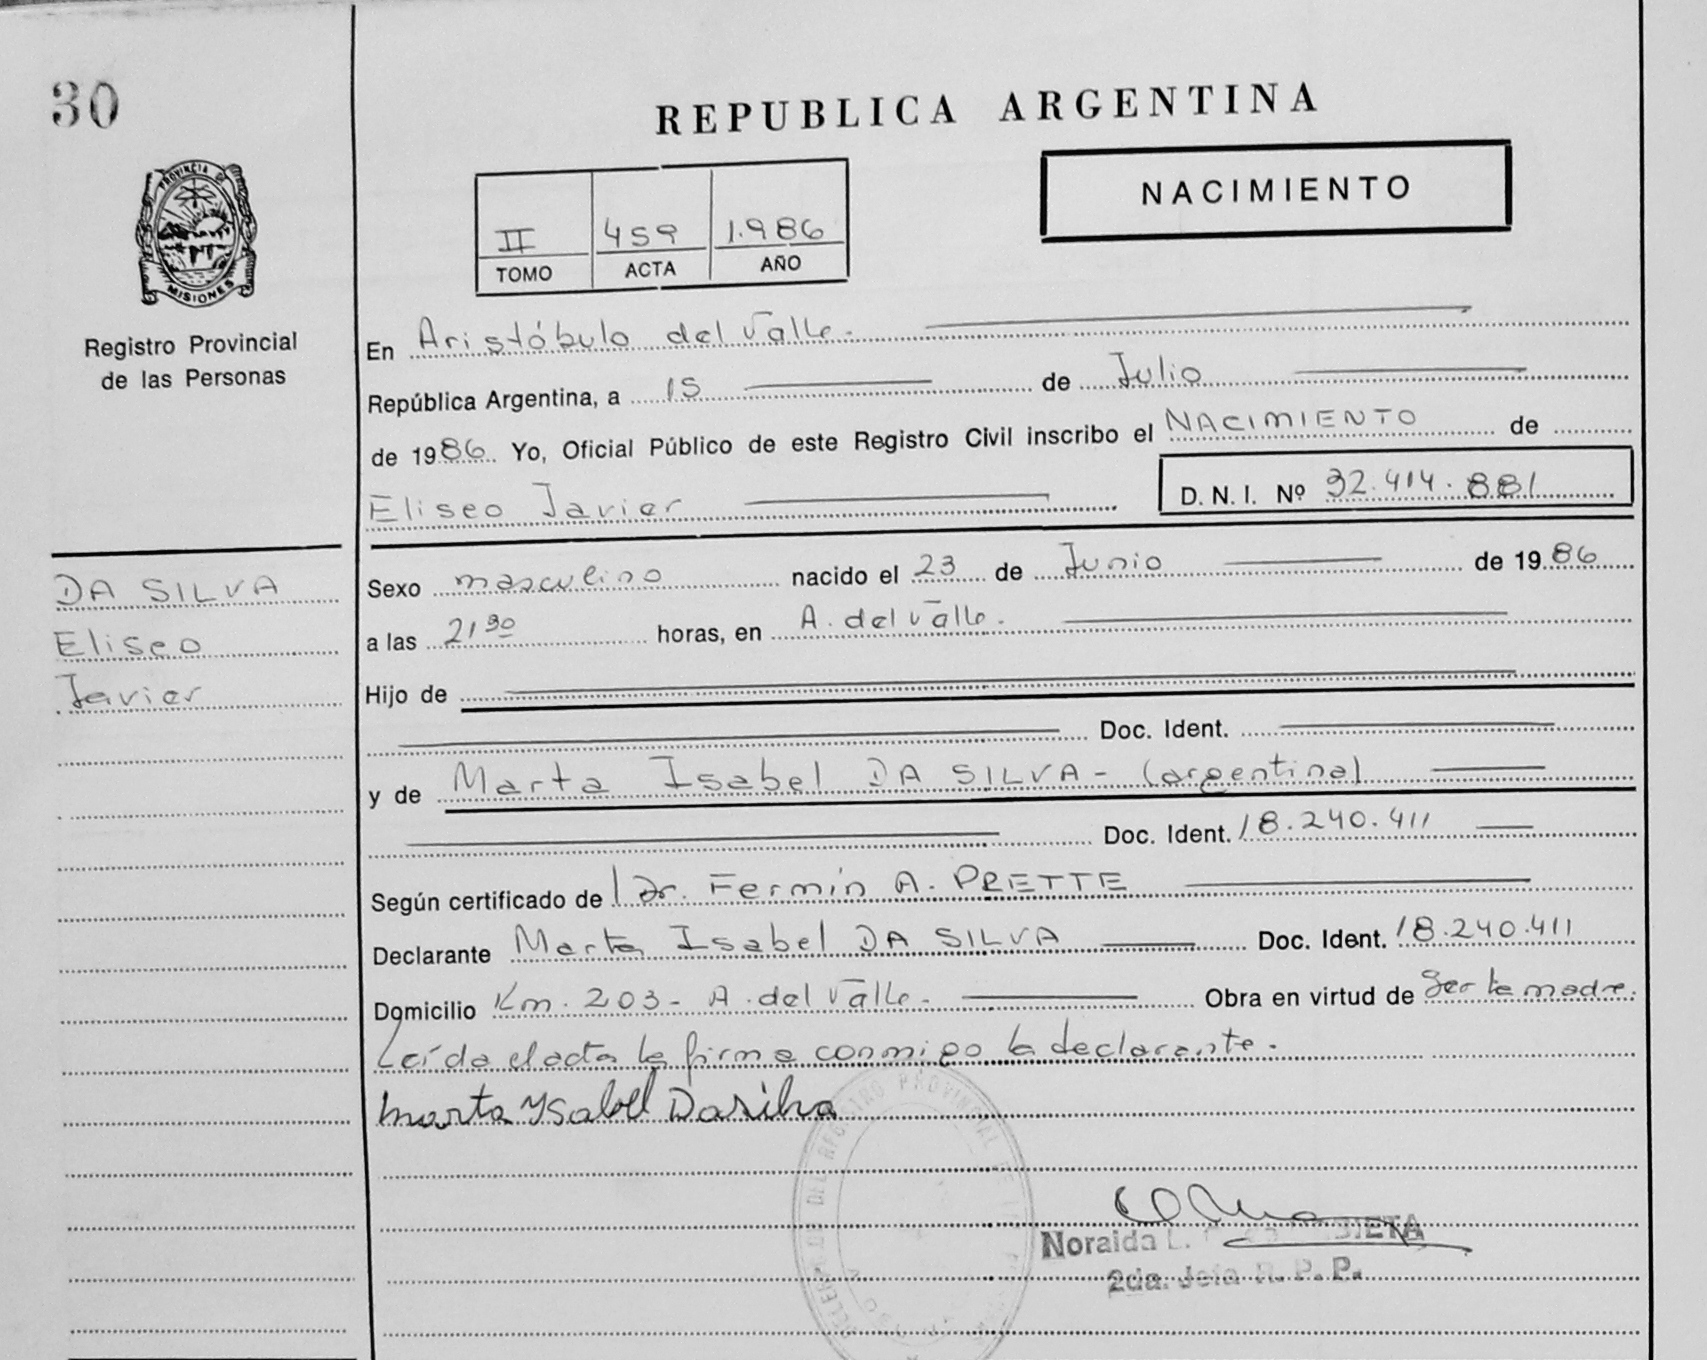 30
REPUBLICA ARGENTINA
NACIMIENTO
II 459 1.986
TOMO ACTA AÑO
PROVINCIA DE
MISIONES
Registro Provincial
de las Personas
En Aristóbulo del Valle.
República Argentina, a 15 de Julio
de 1986. Yo, Oficial Público de este Registro Civil inscribo el NACIMIENTO de
Eliseo Javier D. N. I. Nº 32.414.881
DA SILVA
Eliseo
Javier
Sexo masculino nacido el 23 de Junio de 1986
a las 21 30 horas, en A. del Valle.
Hijo de
Doc. Ident.
y de Marta Isabel DA SILVA - (argentina)
Doc. Ident. 18.240.411
Según certificado de Dr. Fermín A. PRETTE
Declarante Marta Isabel DA SILVA Doc. Ident. 18.240.411
Domicilio Km. 203 - A. del Valle. Obra en virtud de ser la madre.
Leída el acta la firma conmigo la declarante.
Marta Ysabel Dasilva
Noralda L.
2da. Jefa R. P. P.